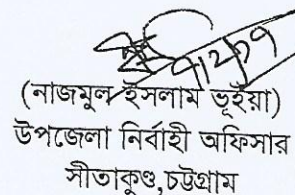 (নাজমুল ইসলাম ভূইয়া)
উপজেলা নির্বাহী অফিসার
সীতাকুণ্ড,চট্টগ্রাম